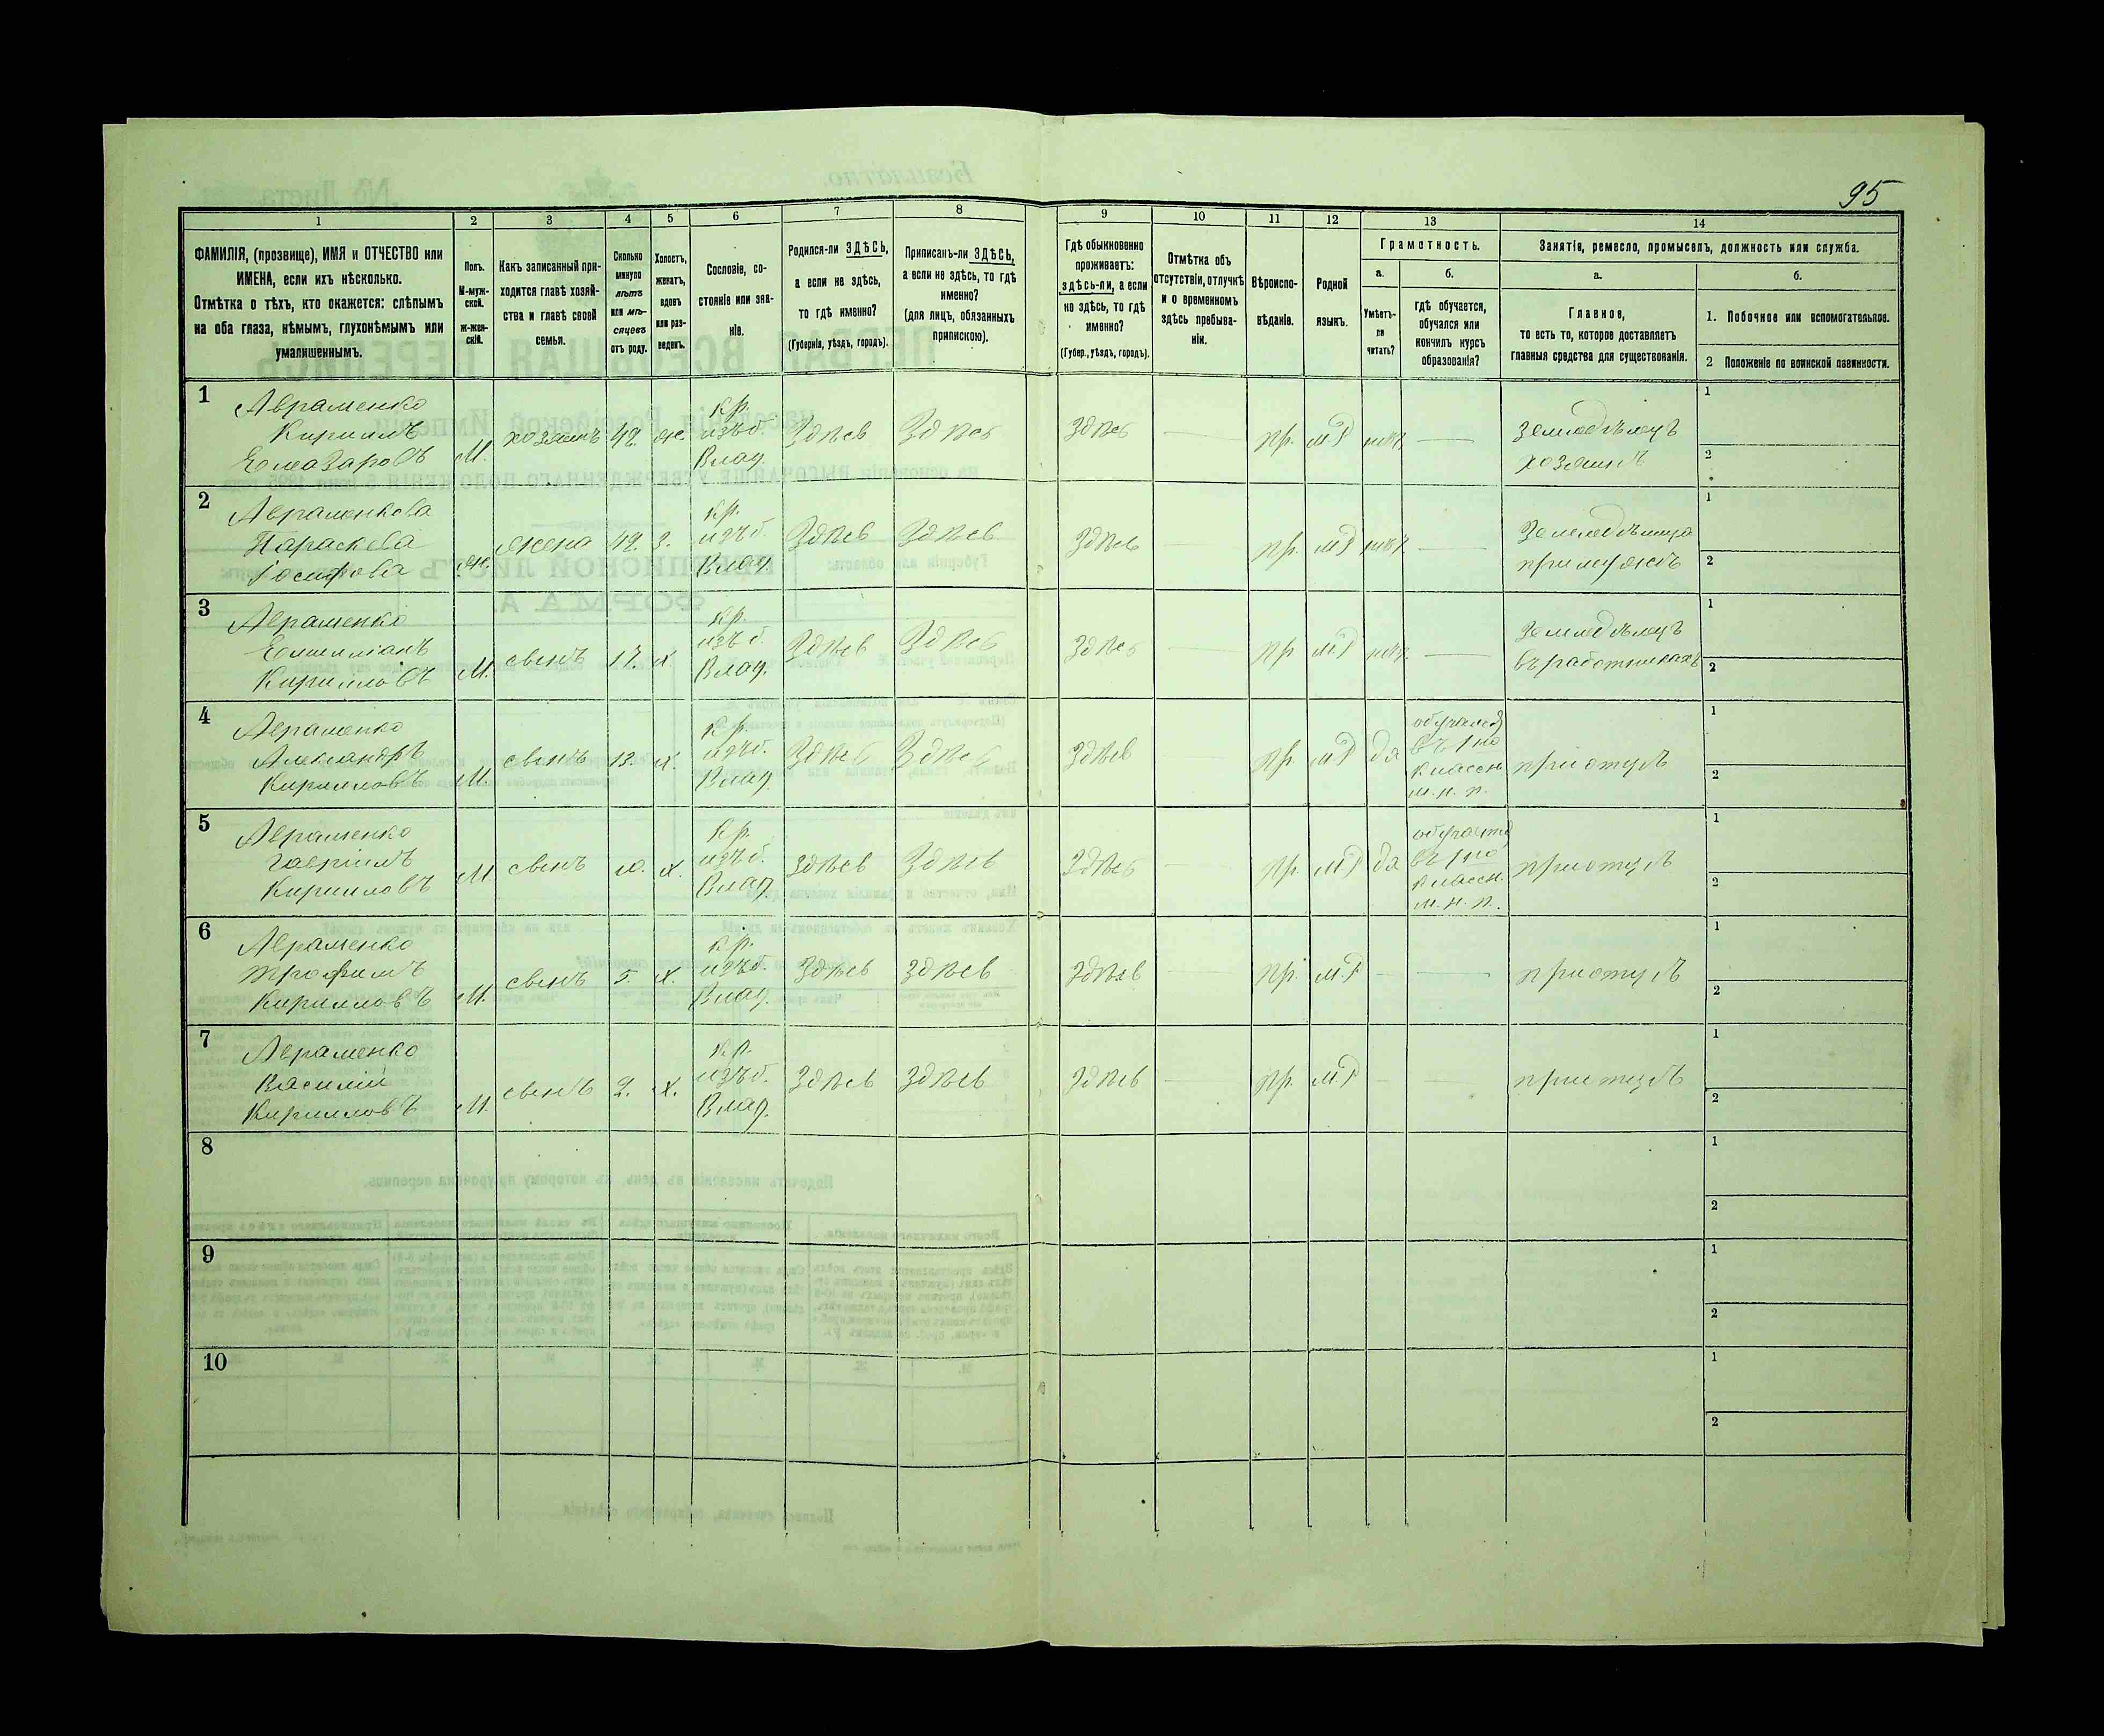 95
1 2 3 4 5 6 7 8 9 10 11 12 13 14
ФАМИЛІЯ, (прозвище), ИМЯ и ОТЧЕСТВО или
ИМЕНА, если ихъ нѣсколько.
Отмѣтка о тѣхъ, кто окажется: слѣпымъ
на оба глаза, нѣмымъ, глухонѣмымъ или
умалишеннымъ.
Полъ.
М-муж-
ской.
ж-жен-
скій.
Какъ записанный при-
ходится главѣ хозяй-
ства и главѣ своей
семьи.
Сколько
минуло
лѣтъ
или мѣ-
сяцевъ
отъ роду.
Холостъ,
женатъ,
вдовъ
или раз-
веденъ.
Сословіе, со-
стояніе или зва-
ніе.
Родился-ли ЗДѢСЬ,
а если не здѣсь,
то гдѣ именно?
(Губернія, уѣздъ, городъ).
Приписанъ-ли ЗДѢСЬ,
а если не здѣсь, то гдѣ
именно?
(для лицъ, обязанныхъ
припискою).
Гдѣ обыкновенно
проживаетъ:
здѣсь-ли, а если
не здѣсь, то гдѣ
именно?
(Губер., уѣздъ, городъ).
Отмѣтка объ
отсутствіи, отлучкѣ
и о временномъ
здѣсь пребыва-
ніи.
Вѣроиспо-
вѣданіе.
Родной
языкъ.
Грамотность.
а.
Умѣетъ-
ли
читать?
б.
гдѣ обучается,
обучался или
кончилъ курсъ
образованія?
Занятіе, ремесло, промыселъ, должность или служба.
а.
Главное,
то есть то, которое доставляетъ
главныя средства для существованія.
б.
1. Побочное или вспомогательное.
2 Положеніе по воинской повинности.
1
Авраменко
Кириллъ
Елеазаровъ
М. хозяинъ 42. же.
кр.
изъ б.
Влад.
Здѣсь Здѣсь Здѣсь — пр. м.Р нѣт —
Земледѣлецъ
хозяинъ
1
2
2
Авраменкова
Параскева
Іосифова
ж. жена 42. з.
кр.
изъ б.
Влад.
Здѣсь Здѣсь Здѣсь — пр. мР нѣт —
Земледѣлица
при мужѣ
1
2
3
Авраменко
Емилліанъ
Кирилловъ
М. сынъ 17. х.
кр.
изъ б.
Влад.
Здѣсь Здѣсь Здѣсь — пр мР нѣт —
Земледѣлецъ
въ работникахъ
1
2
4
Авраменко
Александръ
Кирилловъ
М. сынъ 13. х.
кр.
изъ б.
Влад.
Здѣсь Здѣсь Здѣсь — пр. мР да
обучался
въ 1 но
классн
м. н. п.
при отцѣ
1
2
5
Авраменко
Гавріилъ
Кирилловъ
М сынъ 10. х.
кр.
изъ б.
Влад.
Здѣсь Здѣсь Здѣсь — пр. мР да
обучается
въ 1 но
классн.
м. н. п.
при отцѣ
1
2
6
Авраменко
Трофимъ
Кирилловъ
М. сынъ 5. х.
кр.
изъ б.
Влад.
Здѣсь Здѣсь Здѣсь — пр. м.Р — —
при отцѣ
1
2
7
Авраменко
Василій
Кирилловъ
М. сынъ 2. х.
кр.
изъ б.
Влад.
Здѣсь Здѣсь Здѣсь — пр. м.Р — —
при отцѣ
1
2
8
1
2
9
1
2
10
1
2